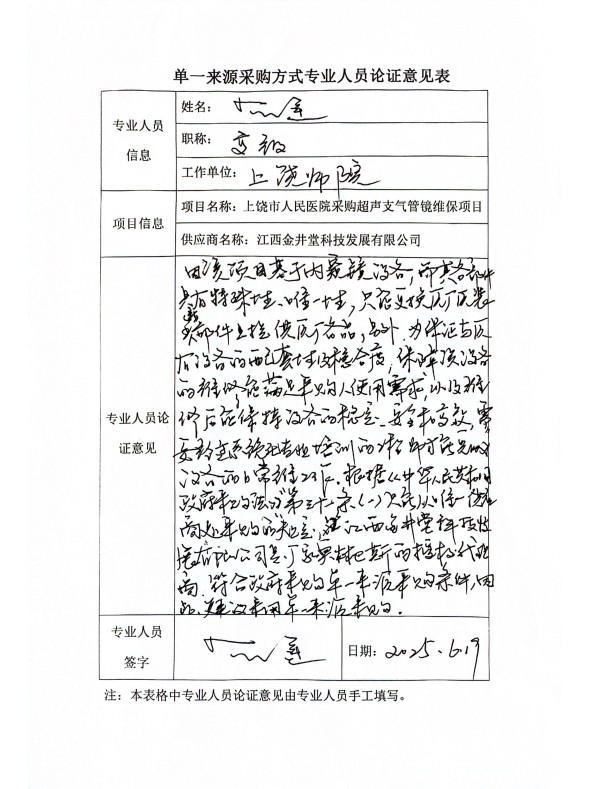 单一来源采购方式专业人员论证意见表
专业人员
信息
姓名：
职称：
工作单位：上饶师院
项目信息
项目名称：上饶市人民医院采购超声支气管镜维保项目
供应商名称：江西金井堂科技发展有限公司
专业人员论
证意见
由该项目基于内窥镜设备，而其各部件
具有特殊性、唯一性，只能更换原厂原装
部件且提供原厂备品，另外，为保证与原
有设备的配套性及稳合度，保障该设备
的维修能满足采购人使用需求，以及维
修后能保持设备的稳定、安全和高效，需
设备的日常维护。根据《中华人民共和国
政府采购法》第三十一条（一）只能从唯一供应
商处采购的规定，江西金井堂科技发
展有限公司是厂家奥林巴斯的授权代理
商，符合政府采购单一来源采购条件，因
此，建议采用单一来源采购。
专业人员
签字
日期：2025.6.19
注：本表格中专业人员论证意见由专业人员手工填写。